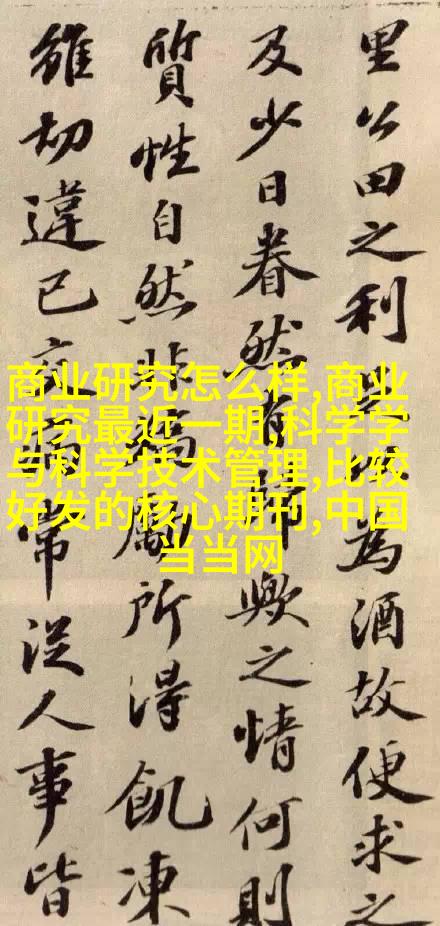 里公田之利為酒故便求之
及少日眷然有歸歟之情何則
質性自然非矯勵所得飢凍
雖切違己交病常從人事皆
商业研究怎么样,商业
研究最近一期,科学学
与科学技术管理,比较
好发的核心期刊,中国
当当网